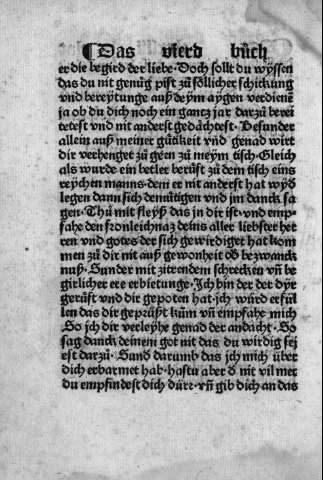 Das vierd bůch
er die begird der liebe· Doch sollt du wyssen
das du nit genůg pist zů sőllicher schickung
vnd bereytunge auß deym aygen verdienē
ja ob du dich noch ein gantz jar dar zů berei
tetest vnd nit anderst gedåchtest· Besunder
allein auß meiner gůtikeit vnd genad wirt
dir verhenget zů geen zů meym tisch· Gleich
als wurde ein betler berůfft zů dem tisch eins
reychen manns· dem er nit anderst hat wyd
legen dann sich demůtigen vnd im danck sa
gen· Thů mit fleyß das in dir ist· vnd emp-
fahe den fronleichnaz deins aller liebster her
ren vnd gotes der sich gewirdiget hat kom
men zů dir nit auß gewonheit ob bezwanck
nuß· Sunder mit zitrendem schrecken vň be
girlicher ere erbietunge· Ich bin der der dye
gerůft vnd dir gepoten hat· jch würd erfül
len das dir gepricht kům vň empfahe mich
So jch dir verleyhe genad der andacht· So
sag danck deinem got nit das du wirdig sei
est darzů· Sund darumb das jch mich über
dich erbarmet hab· hastu aber đ nit vil mer
du empfindest dich důrr· vň gib dich an das